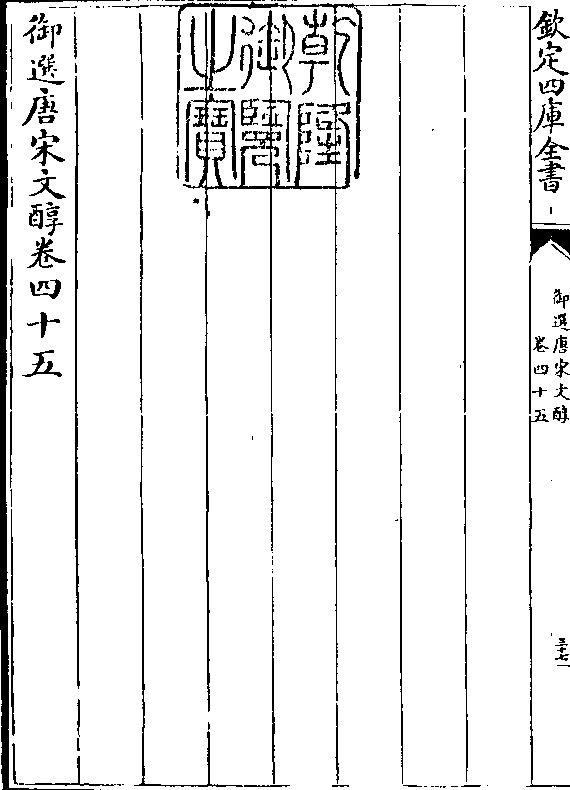 欽定四庫全書
御選唐宋文醇
卷四十五
三十七
乾隆御覽之寶
御選唐宋文醇卷四十五